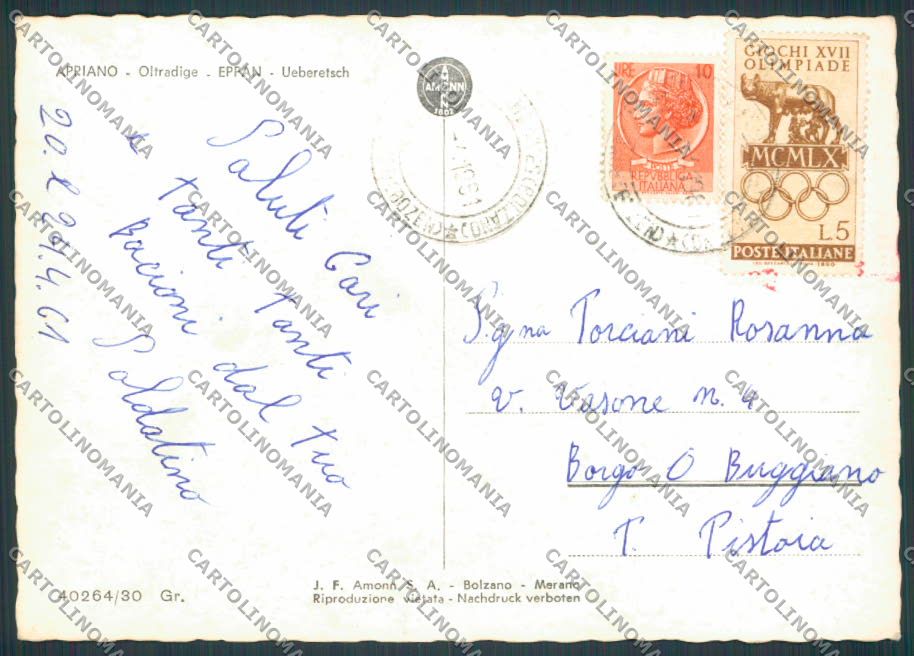 APPIANO - Oltradige - EPPAN - Ueberetsch
AMONN
1802
LIRE 10
POSTE
REPUBBLICA
ITALIANA
GIOCHI XVII
OLIMPIADE
MCMLX
L.5
POSTE ITALIANE
20. 4.61
Saluti Cari
e tanti tanti
Bacioni dal tuo
Soldatino
Sig na Torciani Rosanna
v. Vasone n. 4
Borgo O Buggiano
P. Pistoia
40264/30 Gr.
J. F. Amonn S. A. - Bolzano - Merano
Riproduzione vietata - Nachdruck verboten
CARTOLINOMANIA